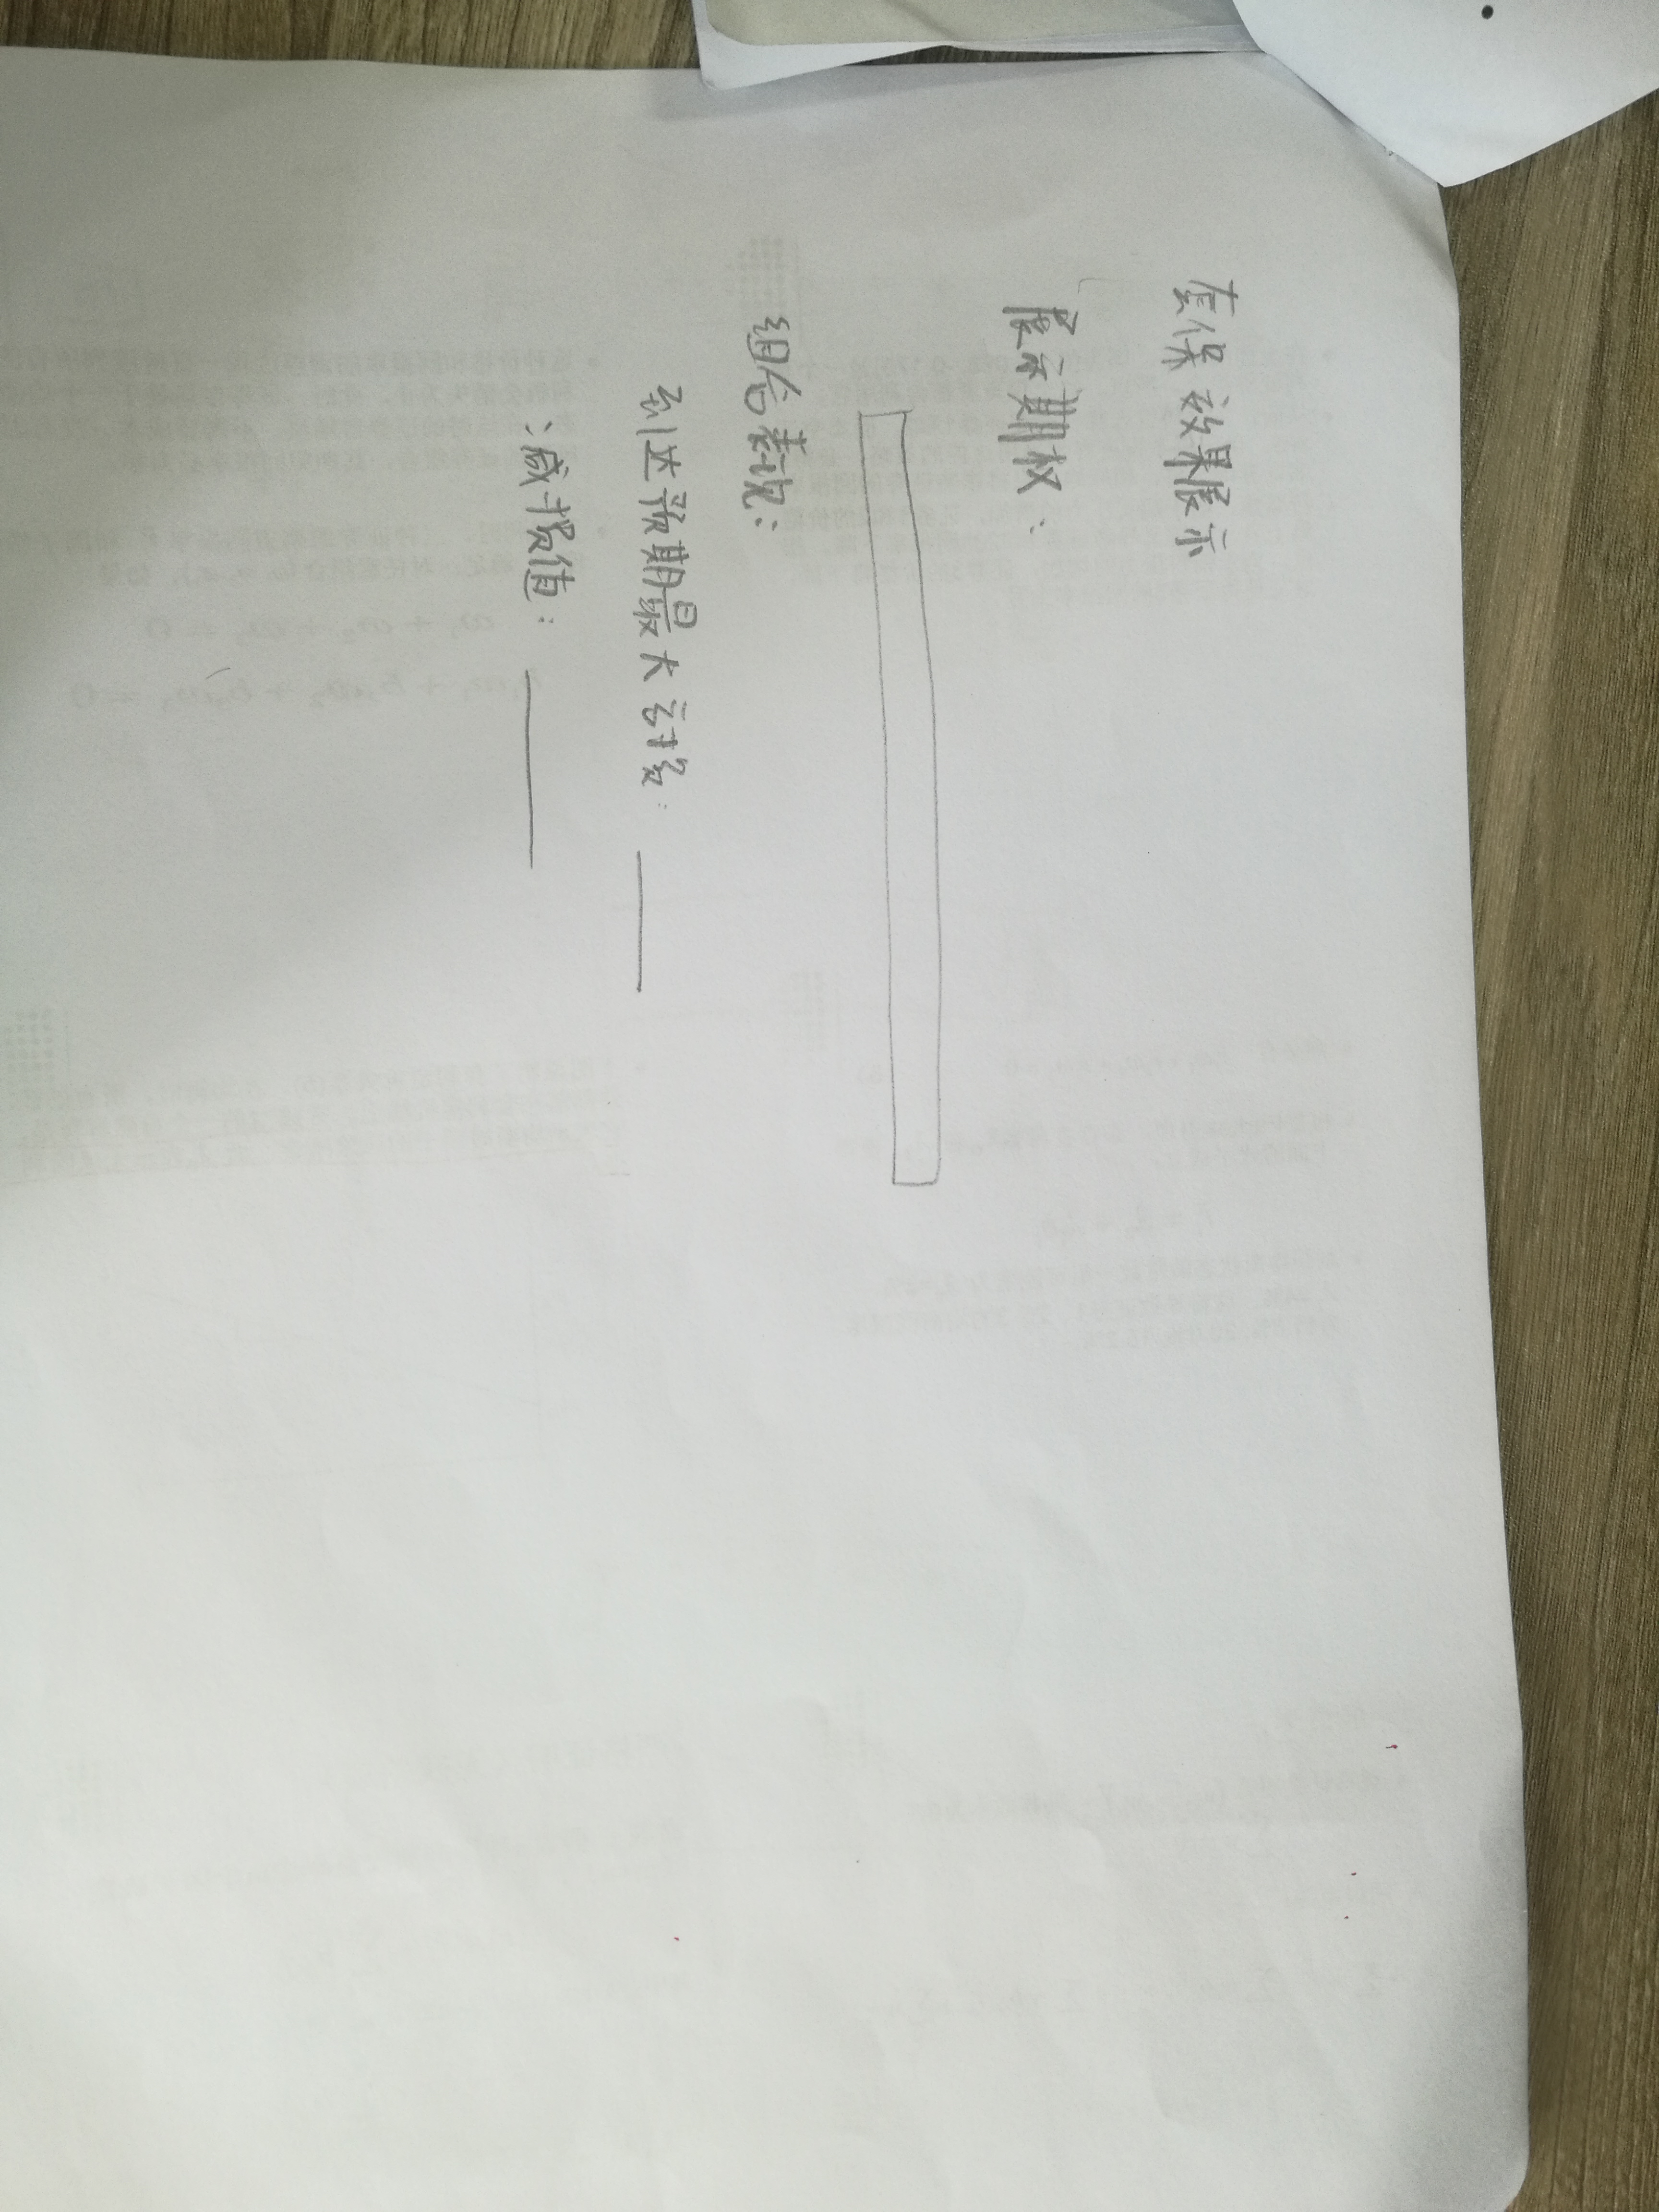 套保效果展示
展示期权：
组合表现：
到达预期最大亏损：
减损值：